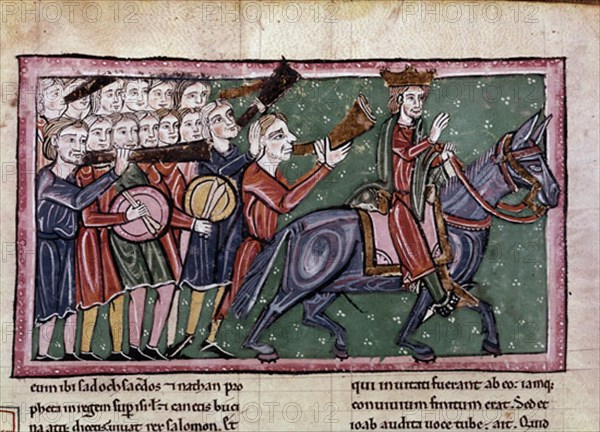 PHOTO12
cum ibi sadoch sacdos ⁊ nathan pro
pheta in regem sup isrl ⁊ canetis buci
na atq; dicetis uiuat rex salomon. Et
qui inuitati fuerant ab eo: iamq;
conuiuium finitum erat. Sed et
ioab audita uoce tube. ait. Quid